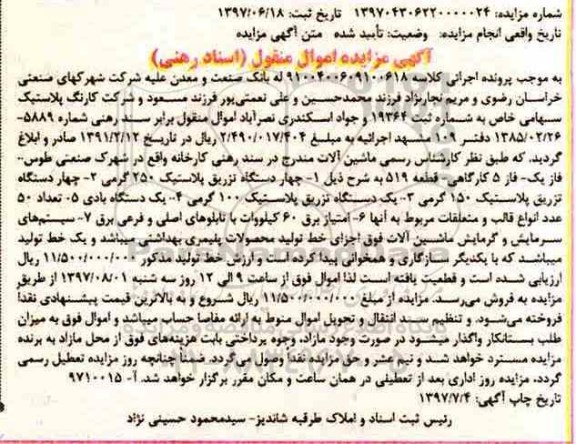 شماره مزایده: ۱۳۹۷۰۴۳۰۶۲۲۰۰۰۰۰۲۴ تاریخ ثبت: ۱۳۹۷/۰۶/۱۸
تاریخ واقعی انجام مزایده: وضعیت: تأیید شده متن آگهی مزایده
آگهی مزایده اموال منقول (اسناد رهنی)
به موجب پرونده اجرائی کلاسه ۹۱۰۰۴۰۰۶۰۹۱۰۰۶۱۸ له بانک صنعت و معدن علیه شرکت شهرکهای صنعتی
خراسان رضوی و مریم نجارنژاد فرزند محمدحسین و علی نعمتی‌پور فرزند مسعود و شرکت کارنگ پلاستیک
سهامی خاص به شماره ثبت ۱۹۳۶۴ و جواد اسکندری نصرآباد اموال منقول برابر سند رهنی شماره ۵۸۸۹-
۱۳۸۵/۰۲/۲۶ دفتر ۱۰۹ مشهد اجرائیه به مبلغ ۲/۴۹۰/۰۱۷/۴۰۴ ریال در تاریخ ۱۳۹۱/۲/۱۲ صادر و ابلاغ
گردید، که طبق نظر کارشناس رسمی ماشین آلات مندرج در سند رهنی کارخانه واقع در شهرک صنعتی طوس-
فاز یک- فاز ۵ کارگاهی- قطعه ۵۱۹ به شرح ذیل ۱- چهار دستگاه تزریق پلاستیک ۲۵۰ گرمی ۲- چهار دستگاه
تزریق پلاستیک ۱۵۰ گرمی ۳- یک دستگاه تزریق پلاستیک ۱۰۰ گرمی ۴- یک دستگاه بادی ۵- تعداد ۵۰
عدد انواع قالب و متعلقات مربوط به آنها ۶- امتیاز برق ۶۰ کیلووات با تابلوهای اصلی و فرعی برق ۷- سیستم‌های
سرمایش و گرمایش ماشین آلات فوق اجزای خط تولید محصولات پلیمری بهداشتی میباشد و یک خط تولید
میباشد که با یکدیگر سازگاری و همخوانی پیدا کرده است و ارزش خط تولید مذکور ۱۱/۵۰۰/۰۰۰/۰۰۰ ریال
ارزیابی شده است و قطعیت یافته است لذا اموال فوق از ساعت ۹ الی ۱۲ روز سه شنبه ۱۳۹۷/۰۸/۰۱ از طریق
مزایده به فروش می‌رسد. مزایده از مبلغ ۱۱/۵۰۰/۰۰۰/۰۰۰ ریال شروع و به بالاترین قیمت پیشنهادی نقداً
فروخته می‌شود. و تنظیم سند انتقال و تحویل اموال منوط به ارائه مفاصا حساب میباشد و اموال فوق به میزان
طلب بستانکار واگذار میشود در صورت وجود مازاد، وجوه پرداختی بابت هزینه‌های فوق از محل مازاد به برنده
مزایده مسترد خواهد شد و نیم عشر و حق مزایده نقداً وصول می‌گردد. ضمناً چنانچه روز مزایده تعطیل رسمی
گردد، مزایده روز اداری بعد از تعطیلی در همان ساعت و مکان مقرر برگزار خواهد شد. آ- ۹۷۱۰۰۱۵
تاریخ چاپ آگهی: ۱۳۹۷/۷/۴
رئیس ثبت اسناد و املاک طرقبه شاندیز- سیدمحمود حسینی نژاد